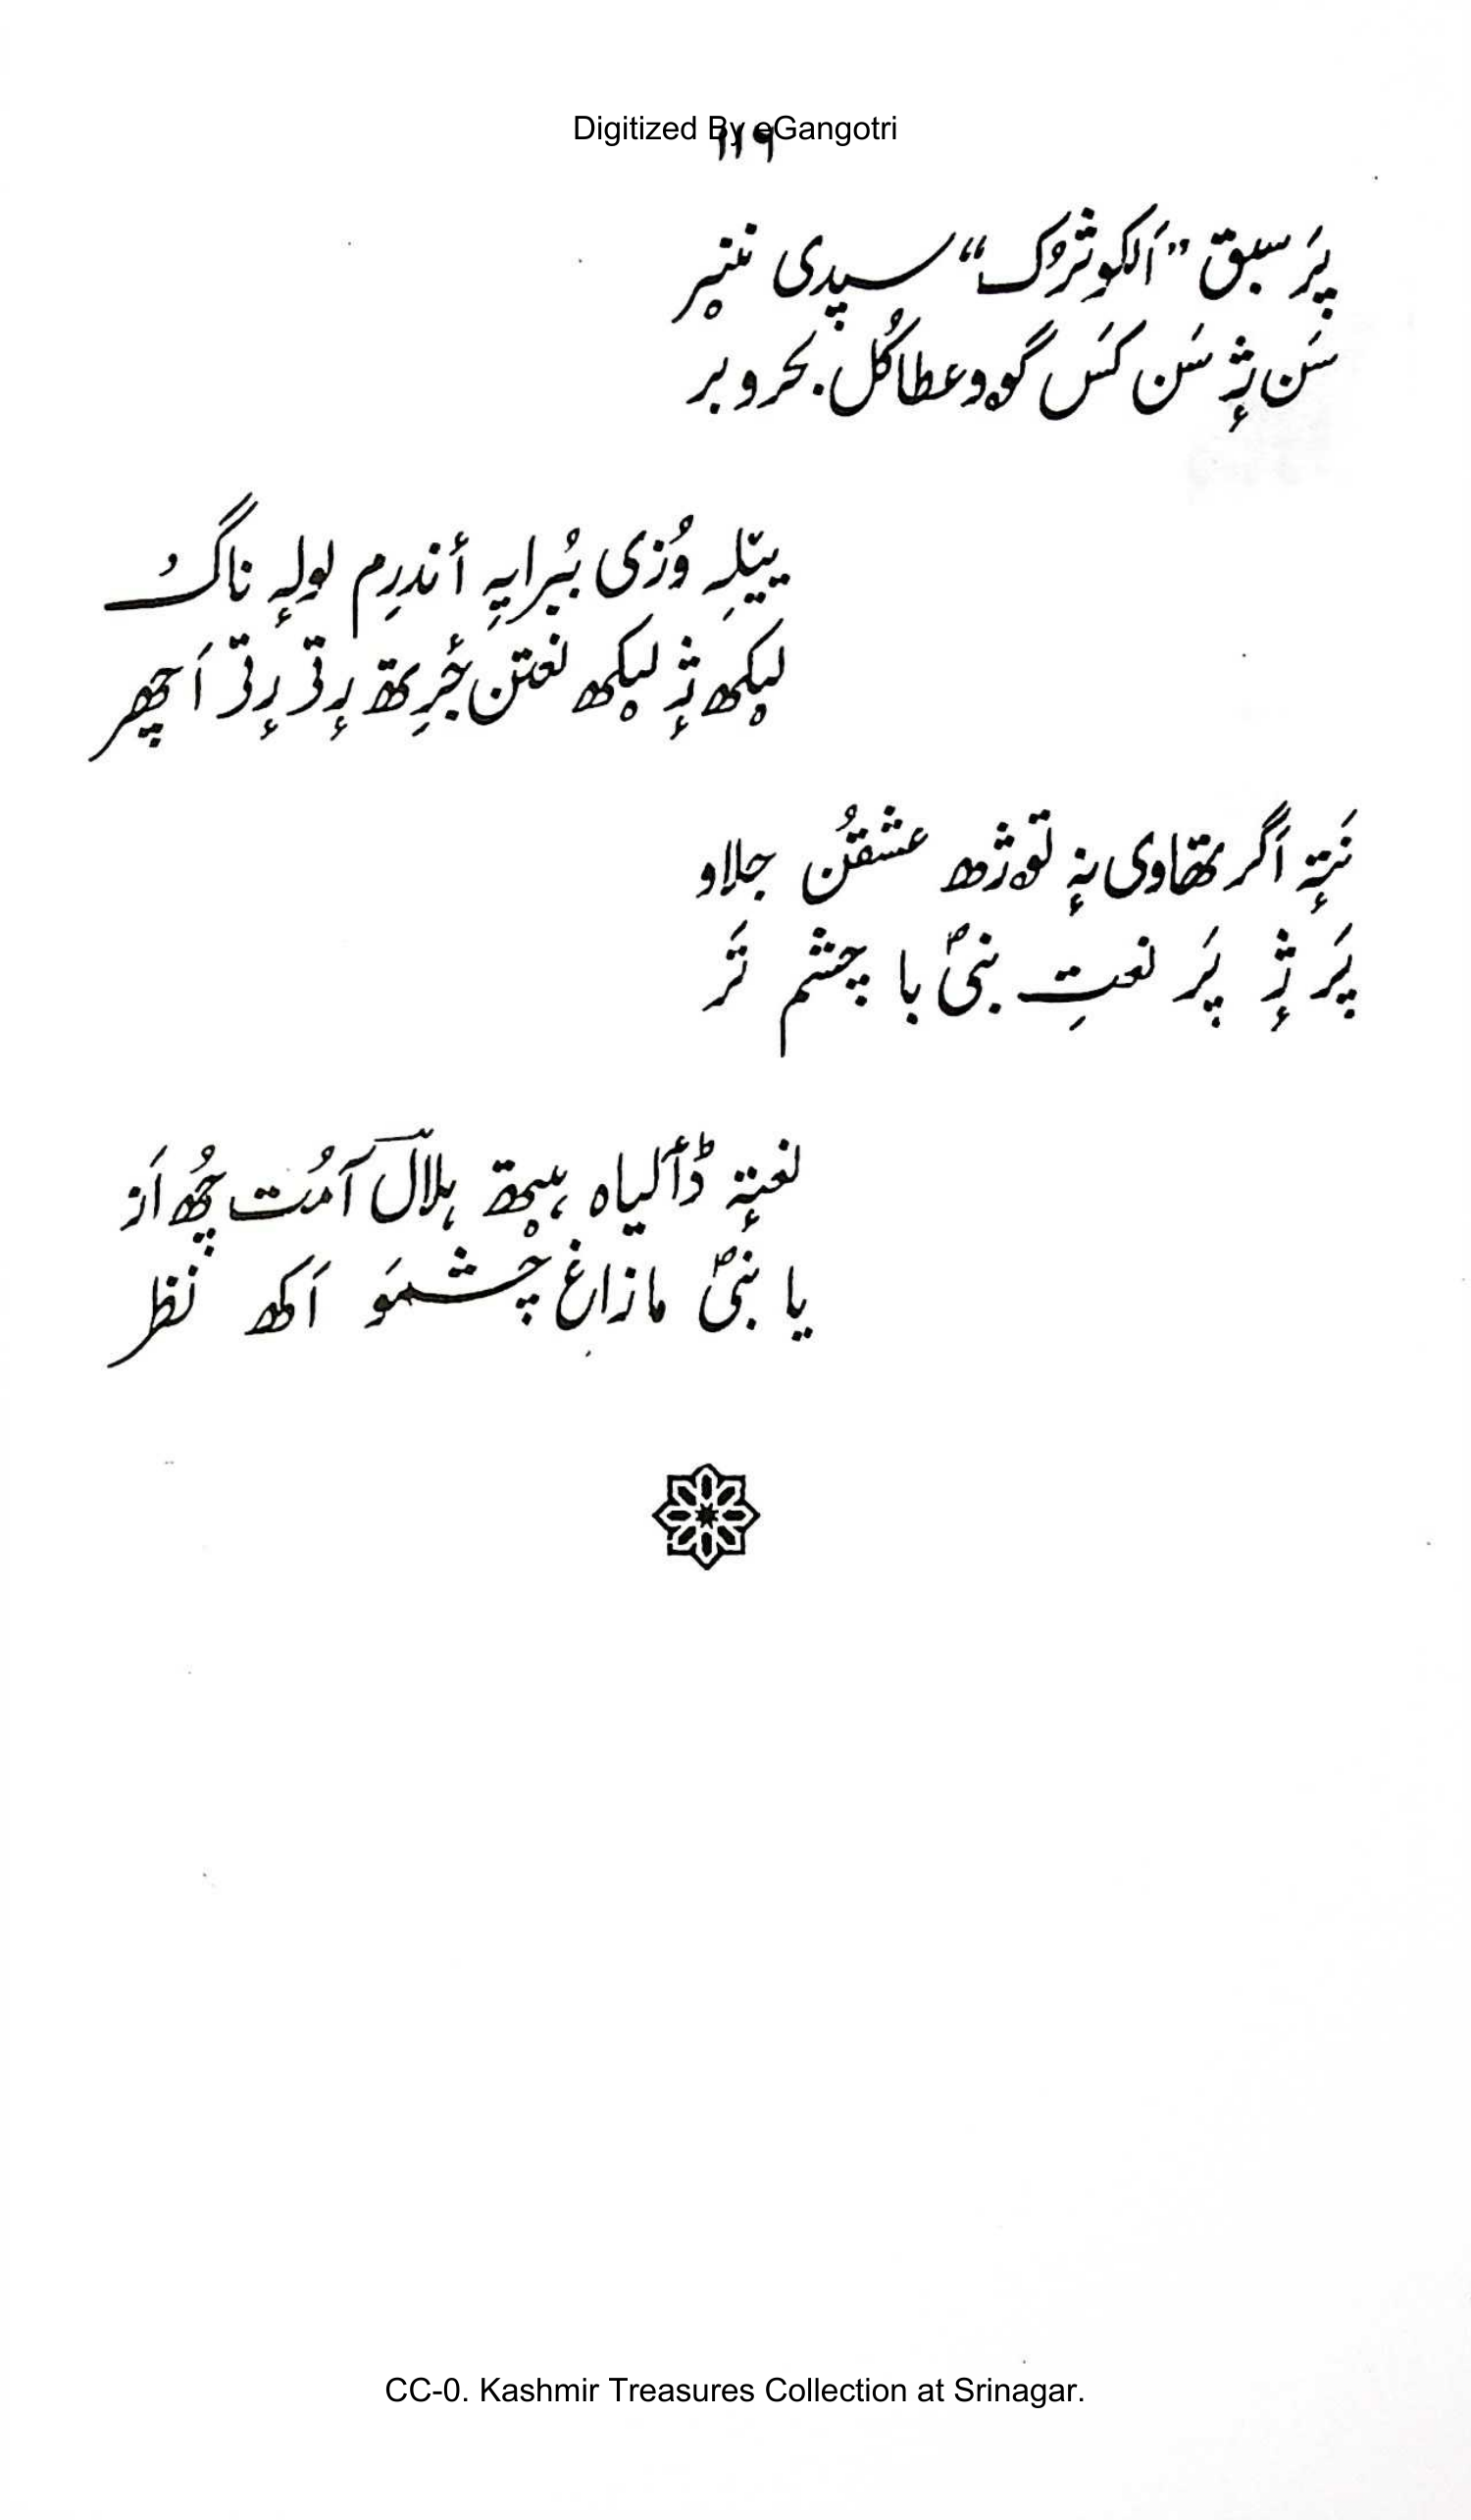 Digitized By eGangotri
۱۱۹
پَر سبق ”اَلکوثرُک“ سپدی نتہٕ پر
سَن ژٕ سَن کَس گوٚو عطا کُل بحر و بر
ییٚلہِ وُزی بُرایہِ أندرِم لولہٕ ناگُ
لیٚکھ ژٕ لیٚکھ نعتن جٔرِتھ رٕتی رٕتی اَچھر
نَتہٕ اَگر تھاوی نہٕ توٚژھ عشقُن جلاو
پَر ژٕ پَر نعتِ نبیؐ با چشم تَر
نعتہٕ ڈألیاہ ہیٚتھ ہلالؔ آمُت چھُ اَز
یا نبیؐ مازاغ چشمَو اَکھ نظر
CC-0. Kashmir Treasures Collection at Srinagar.